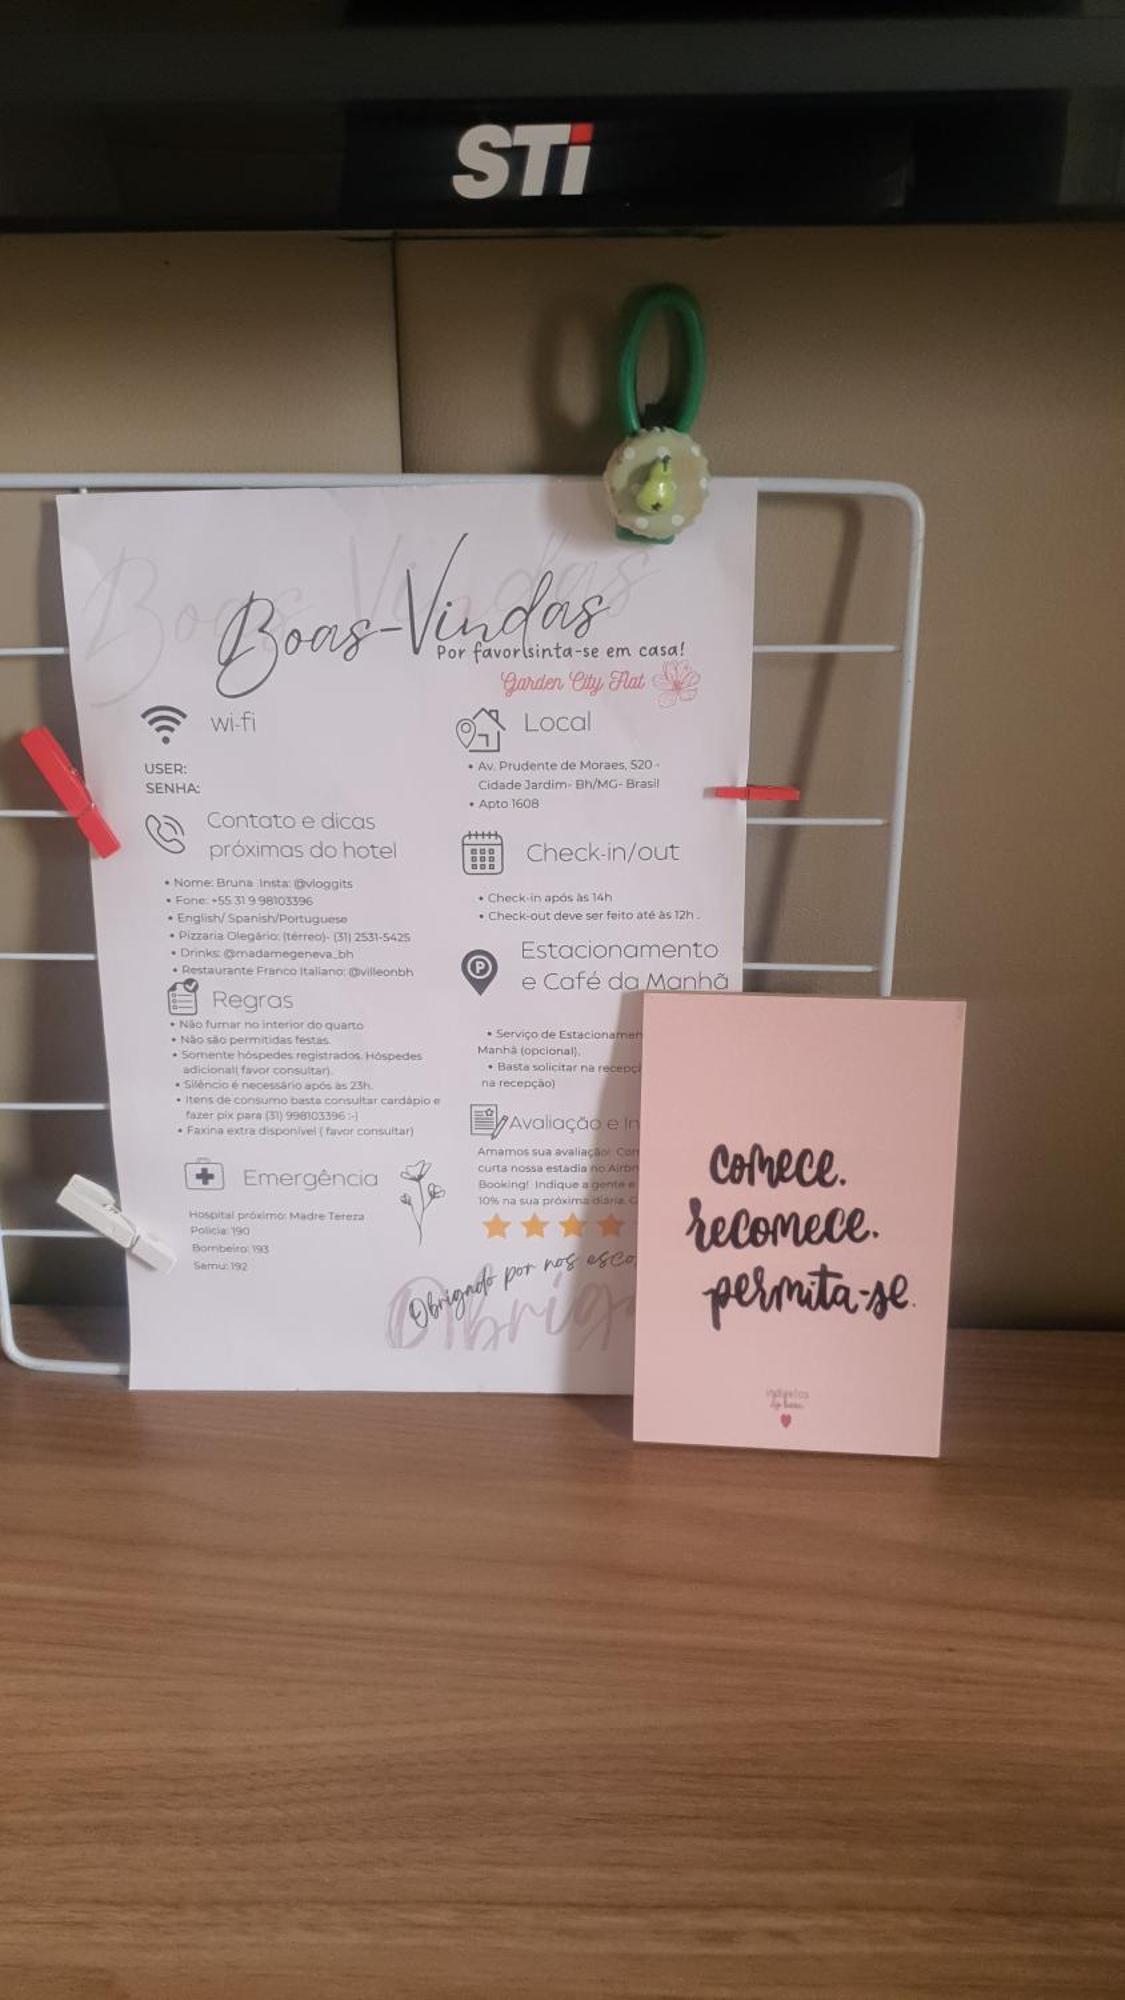 STi
Boas-Vindas
Por favor sinta-se em casa!
Garden City Flat
wi-fi
USER:
SENHA:
Contato e dicas
próximas do hotel
• Nome: Bruna Insta: @vloggits
• Fone: +55 31 9 98103396
• English/ Spanish/Portuguese
• Pizzaria Olegário: (térreo)- (31) 2531-5425
• Drinks: @madamegeneva_bh
• Restaurante Franco Italiano: @villeonbh
Regras
• Não fumar no interior do quarto
• Não são permitidas festas.
• Somente hóspedes registrados. Hóspedes
adicional( favor consultar).
• Silêncio é necessário após às 23h.
• Itens de consumo basta consultar cardápio e
fazer pix para (31) 998103396 :-)
• Faxina extra disponível ( favor consultar)
Emergência
Hospital próximo: Madre Tereza
Polícia: 190
Bombeiro: 193
Samu: 192
Local
• Av. Prudente de Moraes, 520 -
Cidade Jardim- Bh/MG- Brasil
• Apto 1608
Check-in/out
• Check-in após às 14h
• Check-out deve ser feito até às 12h .
Estacionamento
e Café da Manhã
• Serviço de
Manhã (opcional).
• Basta solicitar na
na recepção)
Avaliação e
Amamos sua avaliação!
curta nossa estadia no
Booking! Indique a gente e
10% na sua próxima diária.
Obrigado por nos
comece.
recomece.
permita-se.